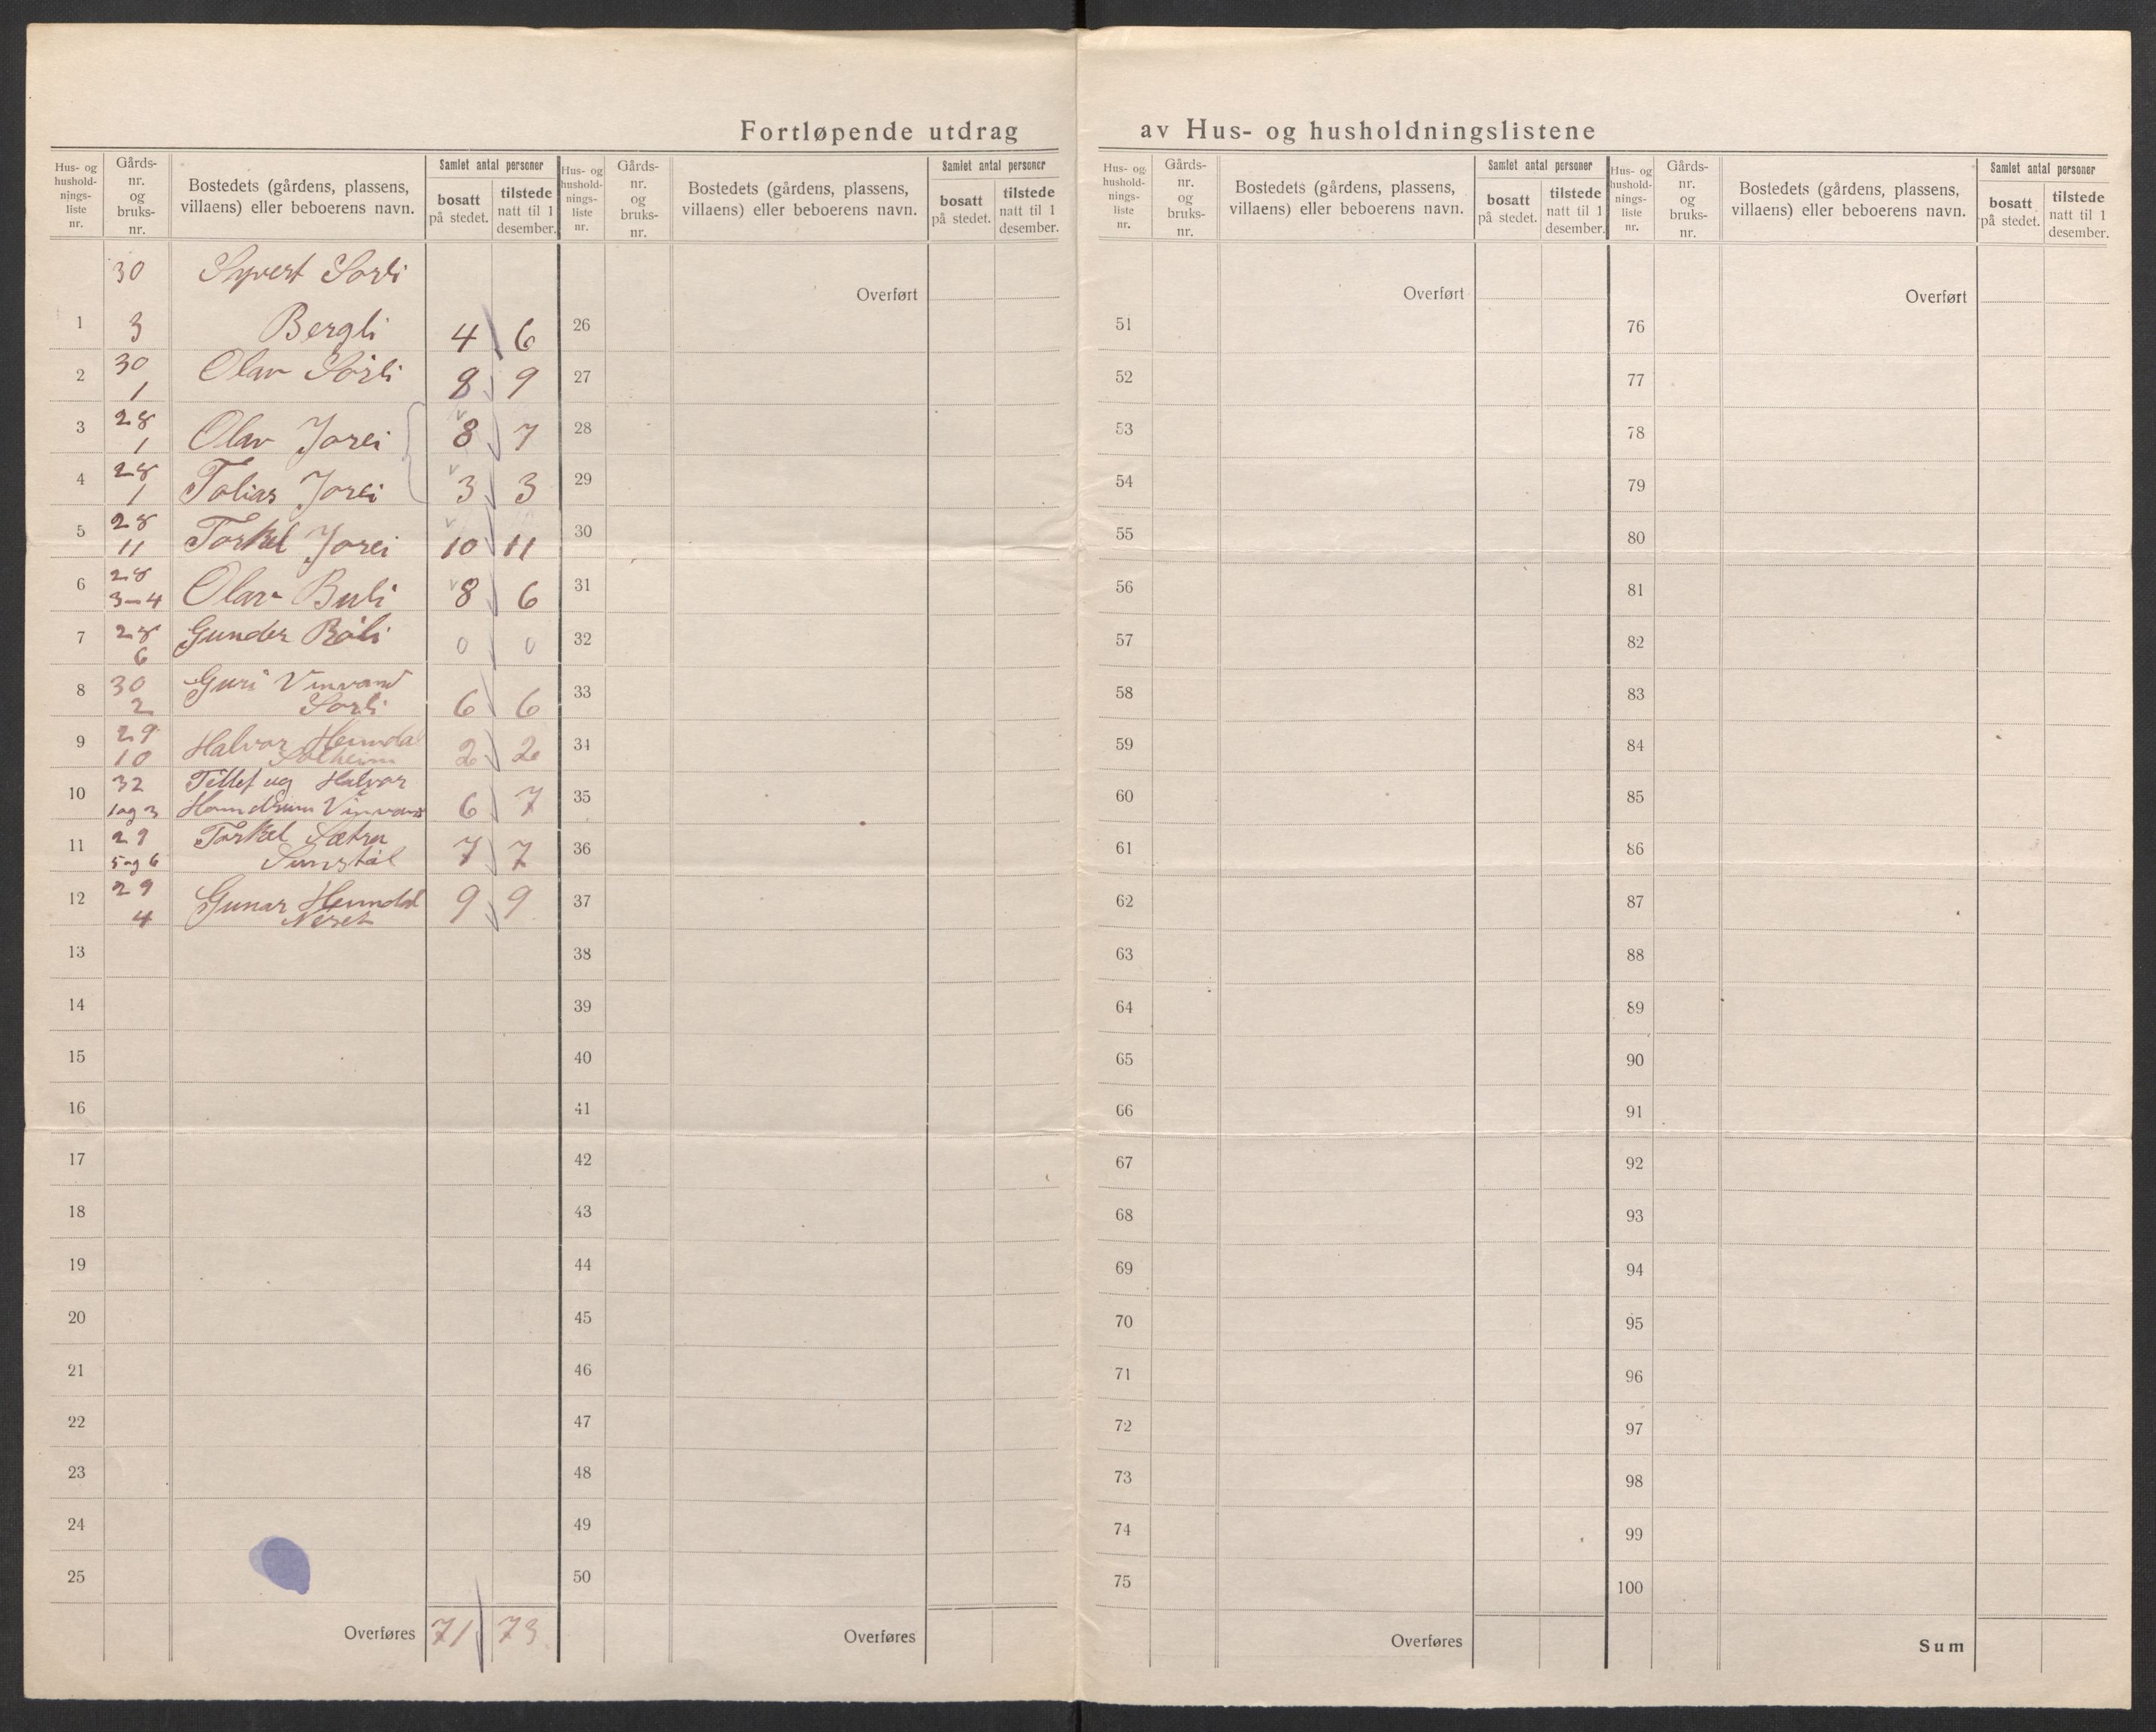 Fortløpende utdrag av Hus- og husholdningslistene
Hus- og
hushold-
nings-
liste
nr.
Gårds-
nr.
og
bruks-
nr.
Bostedets (gårdens, plassens,
villaens) eller beboerens navn.
Samlet antal personer
bosatt
på stedet.
tilstede
natt til 1
desember.
Hus- og
hushold-
nings-
liste
nr.
Gårds-
nr.
og
bruks-
nr.
Bostedets (gårdens, plassens,
villaens) eller beboerens navn.
Samlet antal personer
bosatt
på stedet.
tilstede
natt til 1
desember.
Hus- og
hushold-
nings-
liste
nr.
Gårds-
nr.
og
bruks-
nr.
Bostedets (gårdens, plassens,
villaens) eller beboerens navn.
Samlet antal personer
bosatt
på stedet.
tilstede
natt til 1
desember.
Hus- og
hushold-
nings-
liste
nr.
Gårds-
nr.
og
bruks-
nr.
Bostedets (gårdens, plassens,
villaens) eller beboerens navn.
Samlet antal personer
bosatt
på stedet.
tilstede
natt til 1
desember.
30 Syvert Sorli
1 3 Bergli 4 6
2 30 1 Olav Sörli 8 9
3 28 1 Olav Jorei 8 7
4 28 1 Tobias Jorei 3 3
5 28 11 Torkel Jorei 10 11
6 28 3-4 Olav Buli 8 6
7 28 6 Gunder Róli 0 0
8 30 2 Guri Vinvand
Sorli 6 6
9 29 10 Halvor Heimdal
Solheim 2 2
10 32 1 og 3 Tellef og Halvor
Vinvand 6 7
11 29 5 og 6 Torkel Sætra
7 7
12 29 4 Gunar Heimdal
Neset 9 9
13
14
15
16
17
18
19
20
21
22
23
24
25
Overføres 71 73
Overført
26
27
28
29
30
31
32
33
34
35
36
37
38
39
40
41
42
43
44
45
46
47
48
49
50
Overføres
Overført
51
52
53
54
55
56
57
58
59
60
61
62
63
64
65
66
67
68
69
70
71
72
73
74
75
Overføres
Overført
76
77
78
79
80
81
82
83
84
85
86
87
88
89
90
91
92
93
94
95
96
97
98
99
100
Sum